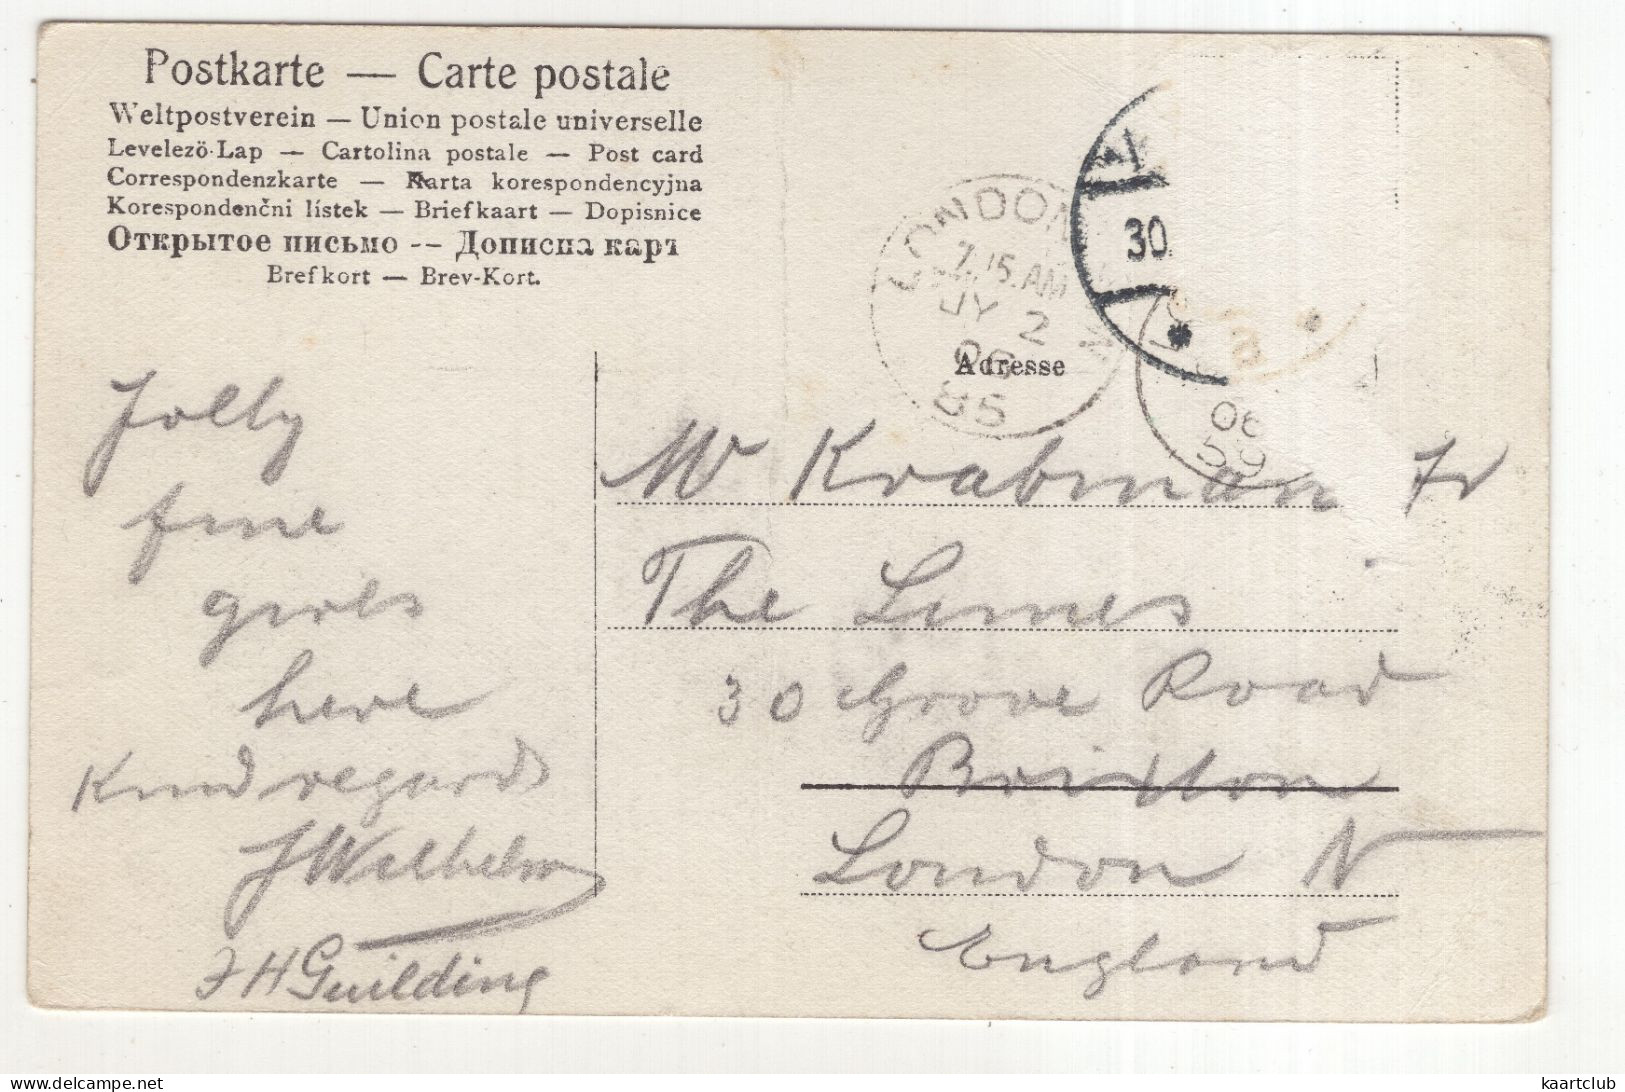 Postkarte — Carte postale
Weltpostverein — Union postale universelle
Levelezö-Lap — Cartolina postale — Post card
Correspondenzkarte — Karta korespondencyjna
Korespondenční lístek — Briefkaart — Dopisnice
Открытое письмо -- Дописна карт
Brefkort — Brev-Kort.
LONDON N
7.15.AM
JY 2
06
85
30.
06
59
Adresse
Jolly
fine
girls
here
Kind regards
J Wilhelm
F H Guilding
Mr Krabman Jr
The Limes
30 Grove Road
Brixton
London N
England
kaartclub